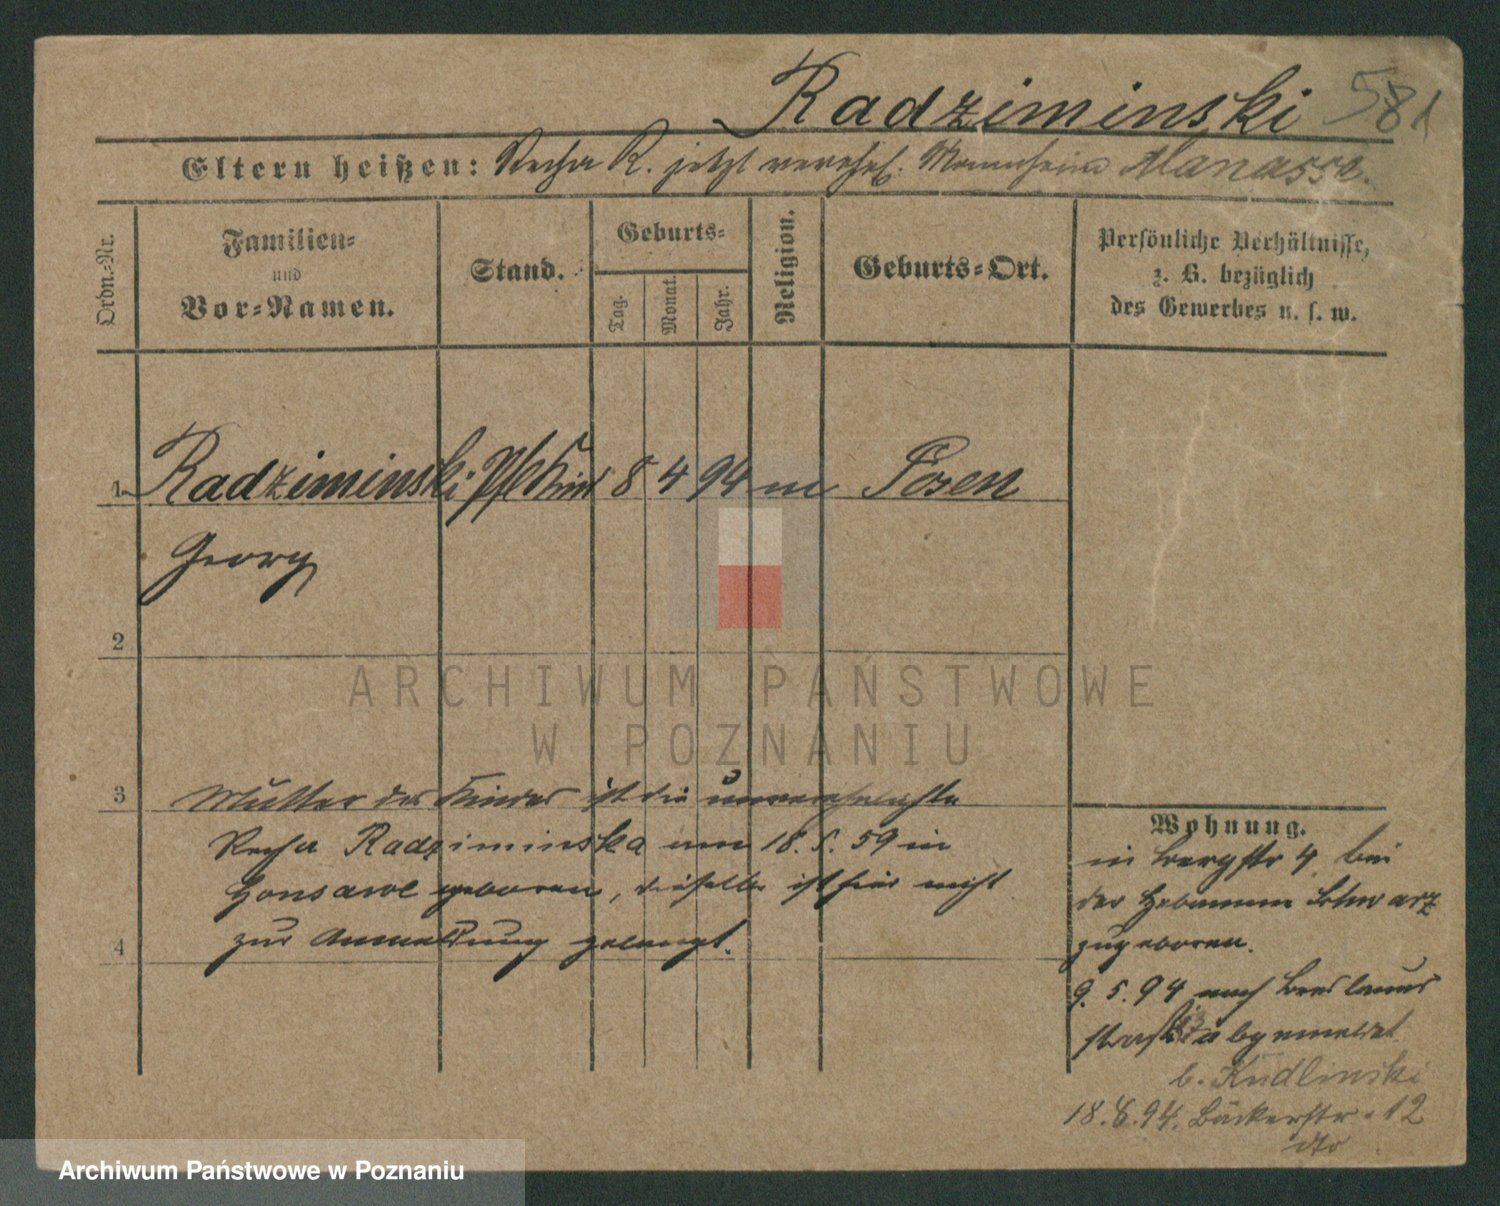 Radziminski 581
Eltern heißen: Recha R. jetzt verehel. Mannheim Manasse.
Ordn.-Nr.
Familien-
und
Vor-Namen.
Stand.
Geburts-
Tag.
Monat.
Jahr.
Religion.
Geburts-Ort.
Persönliche Verhältnisse,
z. B. bezüglich
des Gewerbes u. s. w.
1 Radziminski Pfl Kind 8 4 94 m Posen
Georg
2
3 Mutter des Kindes ist die unverehelichte
Recha Radziminska am 18. 5. 59 in
Gonsawe geboren, dieselbe ist hier nicht
4 zur Anmeldung gelangt.
Wohnung.
in Bergstr 4 bei
der Hebamme Schwarz
zugeboren.
9. 5. 94 nach Breslauer
straße abgemeldet
b. Kudlinski
18. 6. 94. Bäckerstr. 12
dto
ARCHIWUM PAŃSTWOWE
W POZNANIU
Archiwum Państwowe w Poznaniu